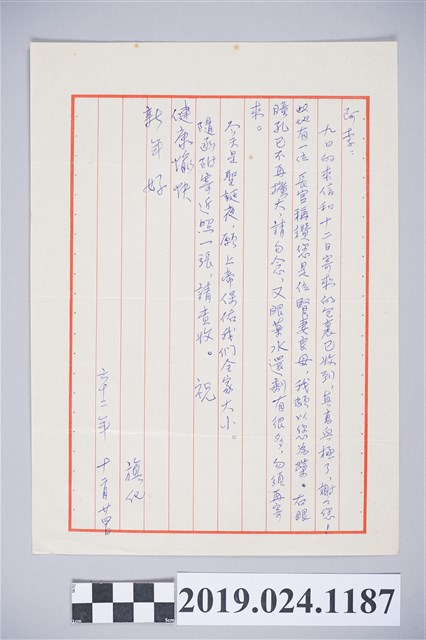 阿李：
九日的來信和十二日寄來的包裹已收到，真高興極了，謝々您！
此地有一位長官稱讚您是位賢妻良母，我頗以您為榮。右眼
瞳孔已不再擴大，請勿念，又眼藥水還剩有很多，勿須再寄
來。
今天是聖誕夜，願上帝保佑我們全家大小。
隨函附寄近照一張，請查收。祝
健康愉快
新年好
旗化
六十二年十二月廿四日
2019.024.1187